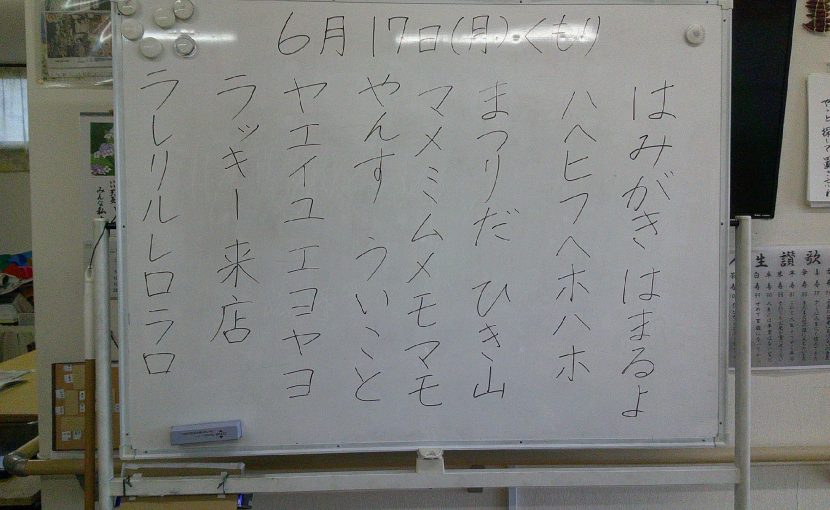 6月17日(月)くもり
はみがき はまるよ
ハヘヒフヘホハホ
まつりだ ひき山
マメミムメモマモ
やんす ういこと
ヤエイユエヨヤヨ
ラッキー来店
ラレリルレロラロ
生讃歌